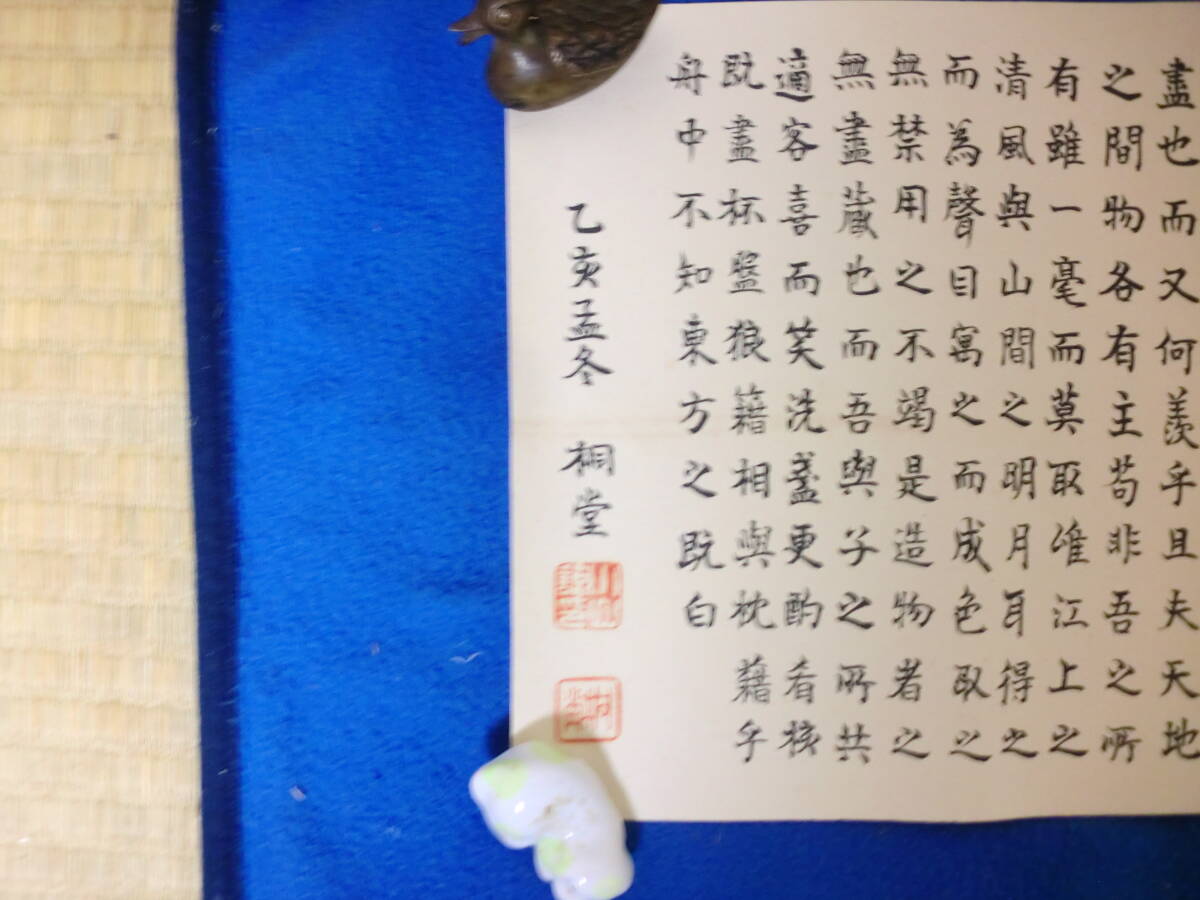 盡也而又何羨乎且夫天地
之間物各有主苟非吾之所
有雖一毫而莫取唯江上之
清風與山間之明月耳得之
而為聲目寓之而成色取之
無禁用之不竭是造物者之
無盡藏也而吾與子之所共
適客喜而笑洗盞更酌肴核
既盡杯盤狼籍相與枕藉乎
舟中不知東方之既白
乙亥孟冬 桐堂